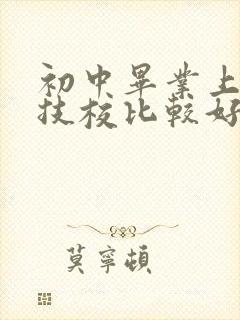 初中畢業上
技校比較好
莫寧頓